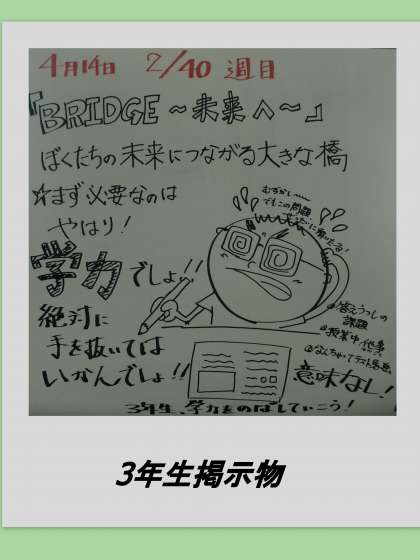 4月14日 2/40 週目
「BRIDGE～未来へ～」
ぼくたちの未来につながる大きな橋
☆まず必要なのは
やはり!
学力でしょ!!
絶対に
手を抜いては
いかんでしょ!!
むずかしい〜
でもこの問題
答えうつしの
課題
授業中
意味なし!
3年生、学力をのばしていこう!
3年生掲示物